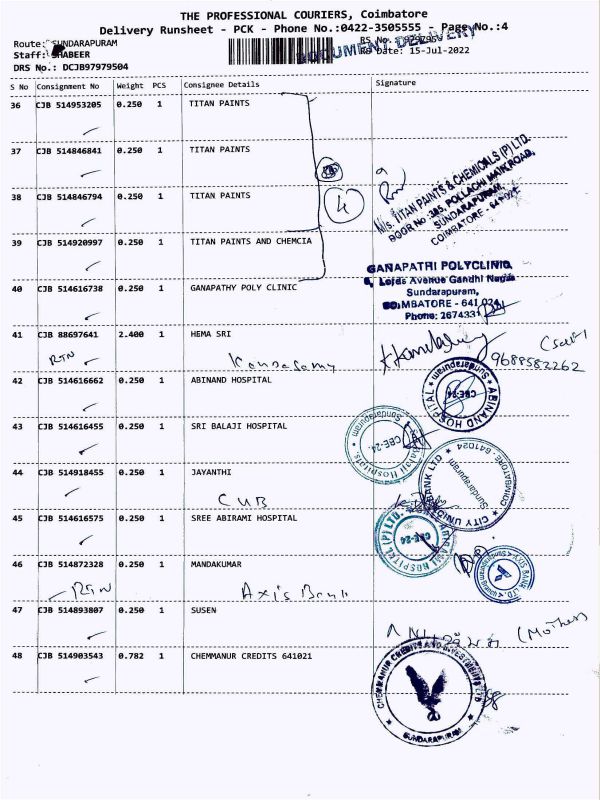 THE PROFESSIONAL COURIERS, Coimbatore
Delivery Runsheet - PCK - Phone No.:0422-3505555 - Page No.:4
Route: SUNDARAPURAM
Staff: SHABEER
DRS No.: DCJB97979504
RS No.
RS Date: 15-Jul-2022
DOCUMENT DELIVERY
S No Consignment No Weight PCS Consignee Details Signature
36 CJB 514953205 0.250 1 TITAN PAINTS
37 CJB 514846841 0.250 1 TITAN PAINTS
38 CJB 514846794 0.250 1 TITAN PAINTS
4
M/s. TITAN PAINTS & CHEMICALS (P) LTD.
DOOR No :385, POLLACHI MAIN ROAD,
SUNDARAPURAM,
COIMBATORE - 641 024
39 CJB 514920997 0.250 1 TITAN PAINTS AND CHEMCIA
40 CJB 514616738 0.250 1 GANAPATHY POLY CLINIC
GANAPATHI POLYCLINIC
Lords Avenue Gandhi Nagar
Sundarapuram,
COIMBATORE - 641 024
Phone: 2674331
41 CJB 88697641 2.400 1 HEMA SRI
RTN
9688582262
42 CJB 514616662 0.250 1 ABINAND HOSPITAL
ABINAND HOSPITAL
Sundarapuram
CBE-24
43 CJB 514616455 0.250 1 SRI BALAJI HOSPITAL
Balaji Hospitals
Sundarapuram
CBE-24
44 CJB 514918455 0.250 1 JAYANTHI
CUB
CITY UNION BANK LTD
Sundarapuram
COIMBATORE - 641024
45 CJB 514616575 0.250 1 SREE ABIRAMI HOSPITAL
HOSPITAL (P) LTD.
CBE-24
46 CJB 514872328 0.250 1 MANDAKUMAR
RTN
Axis Bank
AXIS BANK LTD.
47 CJB 514893807 0.250 1 SUSEN
(Mother)
48 CJB 514903543 0.782 1 CHEMMANUR CREDITS 641021
CHEMMANUR CREDITS AND INVESTMENTS LTD
SUNDARAPURAM